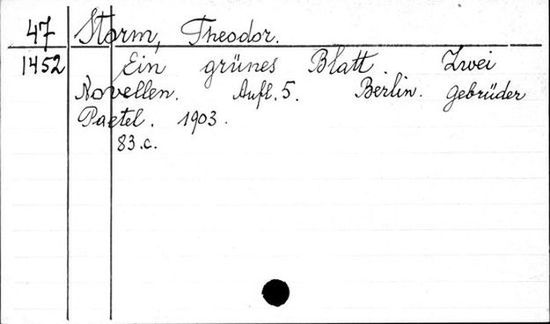 47 Storm, Theodor.
1452 Ein grünes Blatt. Zwei
Novellen. Aufl. 5. Berlin. Gebrüder
Paetel. 1903.
83.c.